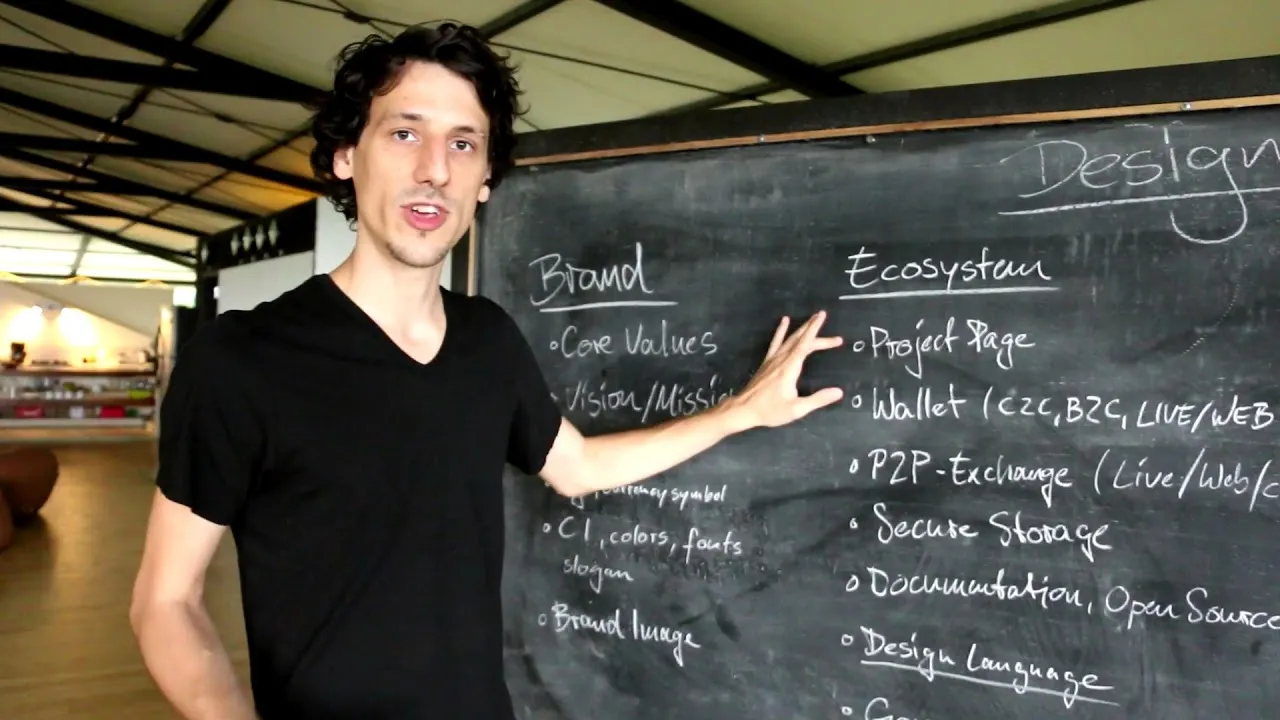 Design
Brand
• Core Values
• Vision/Missio
currency symbol
• CI, colors, fonts
slogan
• Brand Image
Ecosystem
• Project Page
• Wallet (C2C, B2C, LIVE/WEB
• P2P-Exchange (Live/Web/c
• Secure Storage
• Documentation, Open Source
• Design Language